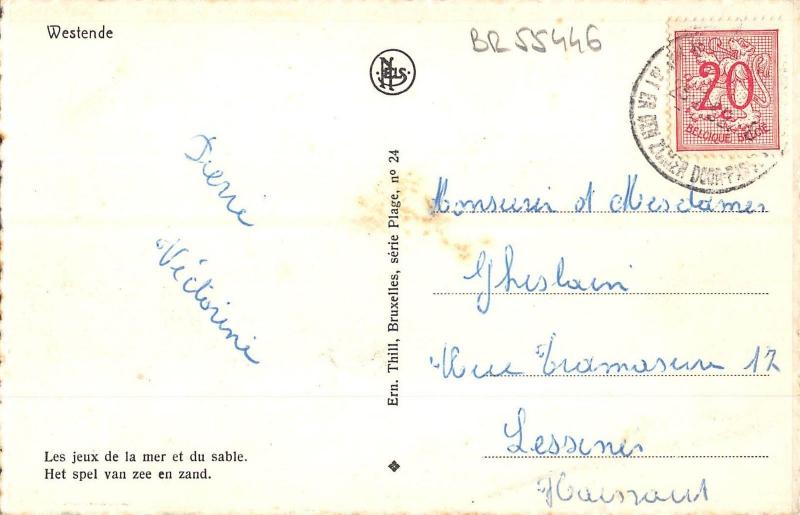 Westende
BR 55446
NELS
20
BELGIQUE BELGIE
Pierre
Victorine
Ern. Thill, Bruxelles, série Plage, nº 24
Monsieur et Mesdames
Ghislain
Rue Tramasure 12
Lessines
Hainaut
Les jeux de la mer et du sable.
Het spel van zee en zand.